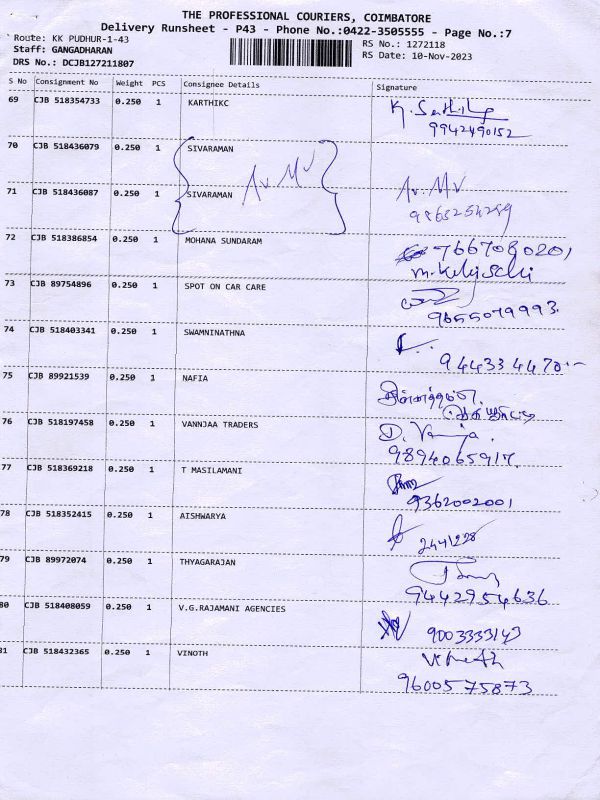 THE PROFESSIONAL COURIERS, COIMBATORE
Delivery Runsheet - P43 - Phone No.:0422-3505555 - Page No.:7
Route: KK PUDHUR-1-43
RS No.: 1272118
Staff: GANGADHARAN
RS Date: 10-Nov-2023
DRS No.: DCJB127211807
S No Consignment No Weight PCS Consignee Details Signature
69 CJB 518354733 0.250 1 KARTHIKC
9942490152
70 CJB 518436079 0.250 1 SIVARAMAN
Av. MV
71 CJB 518436087 0.250 1 SIVARAMAN Av. MV
9865254289
72 CJB 518386854 0.250 1 MOHANA SUNDARAM 7667080201
73 CJB 89754896 0.250 1 SPOT ON CAR CARE
9655079993
74 CJB 518403341 0.250 1 SWAMNINATHNA
944334470
75 CJB 89921539 0.250 1 NAFIA
76 CJB 518197458 0.250 1 VANNJAA TRADERS D. Vanja.
9894065917.
77 CJB 518369218 0.250 1 T MASILAMANI
9362002001
78 CJB 518352415 0.250 1 AISHWARYA
2441228
79 CJB 89972074 0.250 1 THYAGARAJAN
9442954636
80 CJB 518408059 0.250 1 V.G.RAJAMANI AGENCIES
9003333143
81 CJB 518432365 0.250 1 VINOTH
9600575873